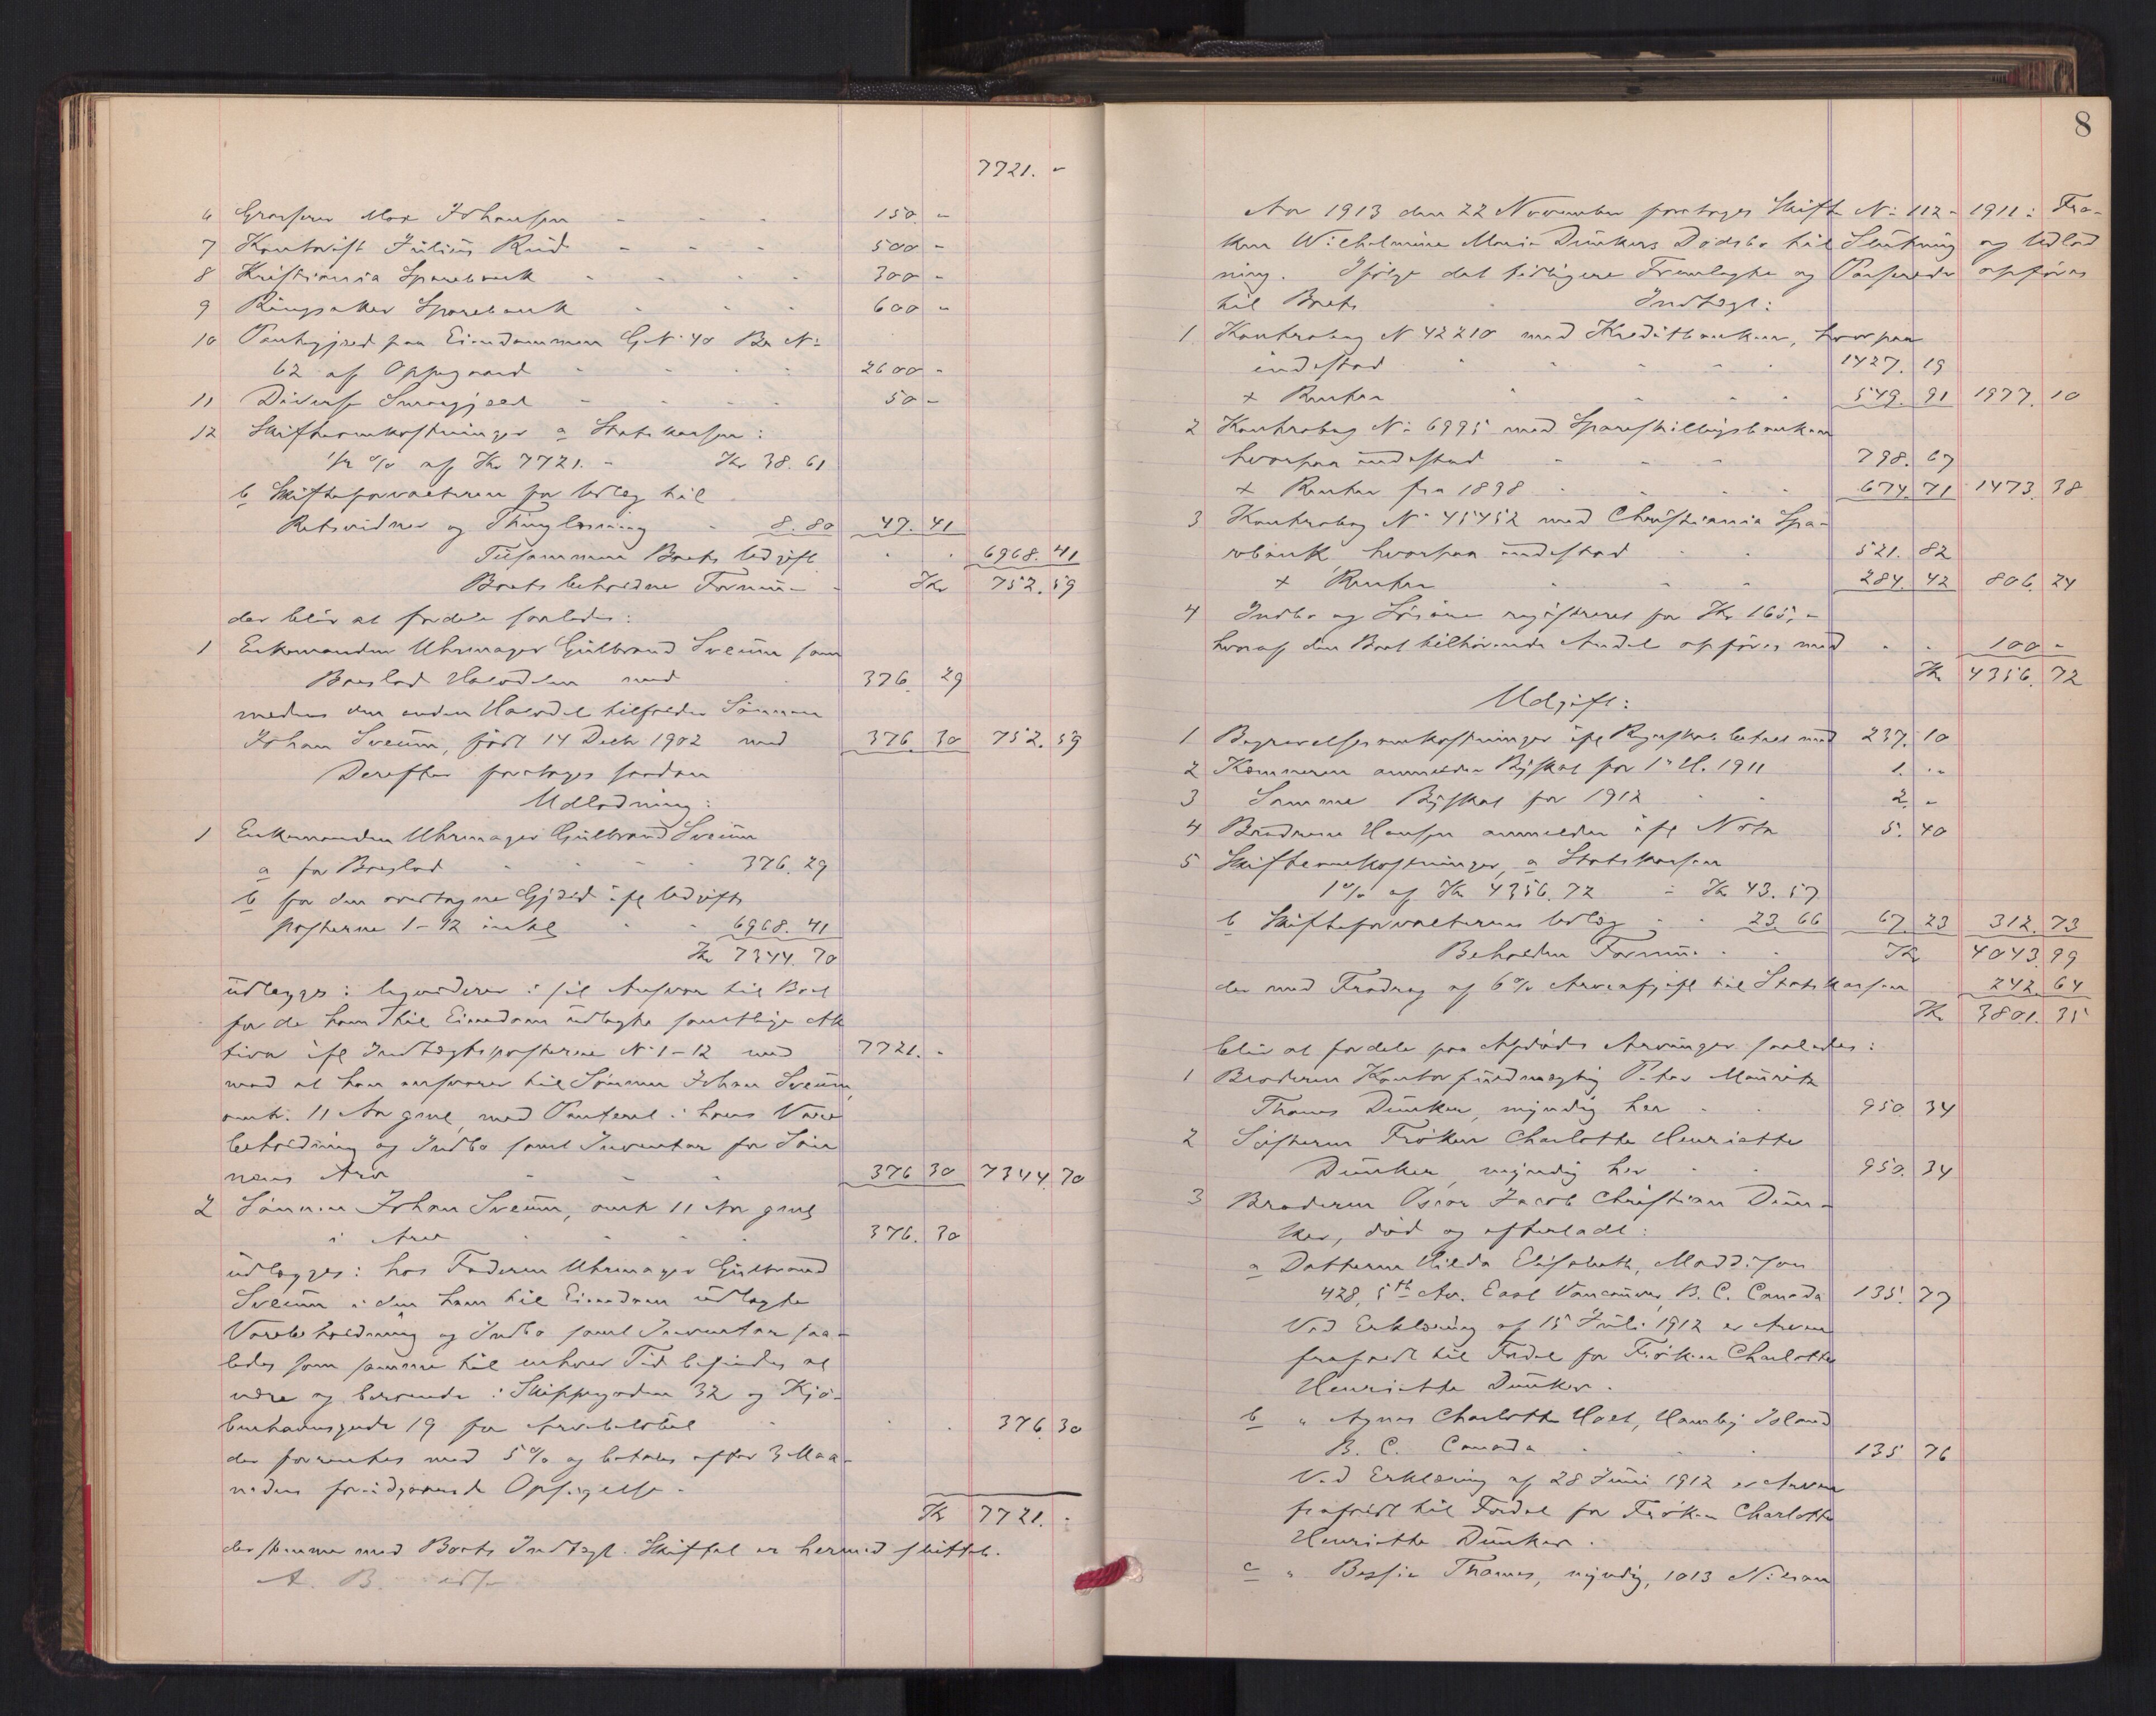 7721. -
6 Grosserer Max Johansen - - - 150. -
7 Kontorist Julius Rud - - - 500 -
8 Kristiania Sparebank - - - 300 -
9 Ringsaker Sparebank - - - 600 -
10 Pantegjæld paa Eiendommen G.N. 40 Br. N:
62 af Oppegaard - - - 2600 -
11 Diverse Smaagjæld - - - 50 -
12 Skifteomkostninger a Statskassen:
1/2 % af Kr 7721. - Kr 38.61
b Skifteforvalteren for Udlæg til
Retsvidner og Thinglæsning - 8.80 47.41
Tilsammen Boets Udgift - - 6968.41
Boets beholdne Formue - Kr 752.59
der blir at fordele saaledes:
1 Enkemanden Uhrmager Gulbrand Sveum som
Boeslod Halvdelen med 376. 29
medens den anden Halvdel tilfalder Sønnen
Johan Sveum, født 14 Decbr 1902 med 376. 30 752.59
Derefter foretages saadan
Udlodning:
1 Enkemanden Uhrmager Gulbrand Sveum
a for Boeslod - - - 376.29
b for den overtagne Gjæld ifl Udgifts
posterne 1-12 inkl - - 6968.41
Kr 7344.70
udlægges: liqviderer i sit Ansvar til Boet
for de ham til Eiendom udlagte samtlige Ak
tiva ifl Indtægtsposterne N: 1-12 med 7721. -
mod at han ansvarer til Sønnen Johan Sveum,
omtr. 11 Aar gml, med Panteret i hans Vare
beholdning og Indbo samt Inventar for Søn
nens Arv - - - 376 30 7344.70
2 Sønnen Johan Sveum, omtr 11 Aar gml,
i Arv - - - 376. 30
udlægges: hos Faderen Uhrmager Gulbrand
Sveum i den ham til Eiendom udlagte
Varebeholdning og Indbo samt Inventar saa-
ledes som samme til enhver Tid befindes at
være og beroende i Skippergaden 32 og Kjø-
benhavnsgade 19 for Arvebeløbet - - 376.30
der forrentes med 5 % og betales efter 3 Maa-
neders foregaaende Opsigelse.
Kr 7721. -
der stemmer med Boets Indtægt. Skiftet er hermed sluttet.
8
Aar 1913 den 22 November foretages Skifte N: 112 - 1911: Frø-
ken Wilhelmine Marie Dunkers Dødsbo til Slutning og Udlod
ning. Ifølge det tidligere Fremlagte og Passerede opføres
til Boets Indtægt:
1 Kontrabog N 42210 med Kreditbanken, hvorpaa
indestod - - - 1427. 19
+ Renter - - - 549. 91 1977. 10
2 Kontrabog N: 6995 med Spareskillingsbanken
hvorpaa indestod - - - 798. 67
+ Renter fra 1898 - - - 674. 71 1473. 38
3 Kontrabog N: 45452 med Christiania Spa-
rebank, hvorpaa indestod - - 521. 82
+ Renter - - - 284. 42 806. 24
4 Indbo og Løsøre registreret for Kr 165, -
hvoraf den Boet tilhørende Andel opføres med - - 100 -
Kr 4356. 72
Udgift:
1 Begravelsesomkostninger ifl Regnskab betalt med 237. 10
2 Kemneren anmelder Byskat for 1' H. 1911 1. -
3 Samme Byskat for 1912 - - 2. -
4 Brødrene Hansen anmelder ifl Nota 5. 40
5 Skifteomkostninger, a Statskassen
1 % af Kr 4356.72 : Kr 43.57
b Skifteforvalterens Udlæg - - 23 66 67. 23 312. 73
Beholden Formue - - Kr 4043. 99
der med Fradrag af 6 % Arveafgift til Statskassen 242. 64
Kr. 3801. 35
blir at fordele paa Afdødes Arvinger saaledes:
1 Broderen Kontorfuldmægtig Peter Mauritz
Thomas Dunker, myndig her - - 950 34
2 Søsteren Frøken Charlotte Henriette
Dunker, myndig her - - 950. 34
3 Broderen Oscar Jacob Christian Dun-
ker, død og efterladt:
a Datteren Hilda Elisabeth, Maddison
428, 5th Av. East Vancouver, B. C. Canada 135. 77
Ved Erklæring af 15 Juli 1912 er Arven
frafaldt til Fordel for Frøken Charlotte
Henriette Dunker.
b " Agnes Charlotte Holt, Hornby Island
B. C. Canada - - - 135 76
Ved Erklæring af 28 Juni 1912 er Arven
frafaldt til Fordel for Frøken Charlotte
Henriette Dunker.
c " Bessie Thomas, myndig, 1013 Nelson